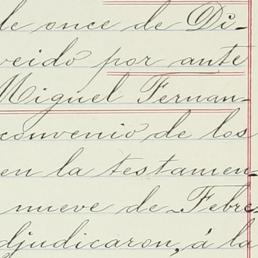 de once de Di-
veido por ante
Miguel Fernan-
convenio de los
en la testamen-
nueve de Febre
djudicaron, á la